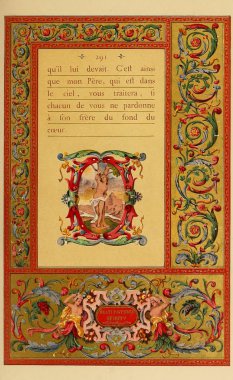 291
qu'il lui devait. C'est ainsi
que mon Père, qui est dans
le ciel, vous traitera, si
chacun de vous ne pardonne
à son frère du fond du
cœur.
BEATI PAUPERES
SPIRITU